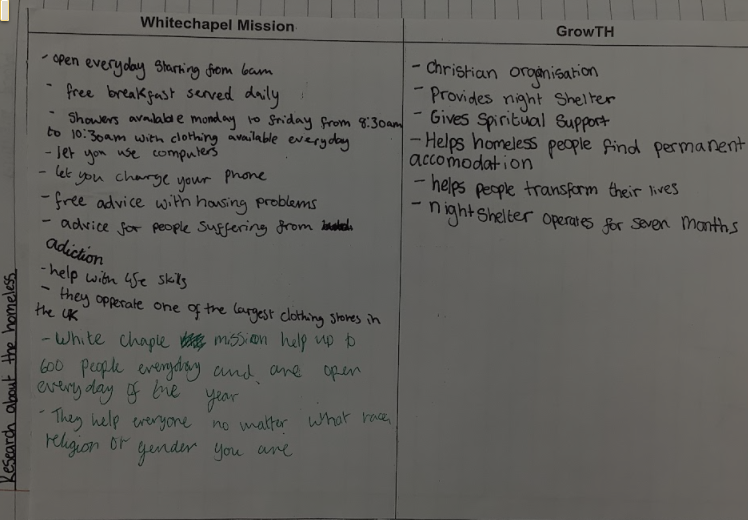 Research about the homeless
Whitechapel Mission
- open everyday starting from 6am
- free breakfast served daily
- Showers available monday to friday from 8:30am
to 10:30am with clothing available everyday
- let you use computers
- let you charge your phone
- free advice with housing problems
- advice for people suffering from
adiction
- help with life skills
- they opperate one of the largest clothing stores in
the UK
- White chaple mission help up to
600 people everyday and are open
everyday of the year
- They help everyone no matter what race,
religion or gender you are
GrowTH
- Christian organisation
- Provides night shelter
- Gives Spiritual Support
- Helps homeless people find permanent
accomodation
- helps people transform their lives
- night shelter operates for seven months